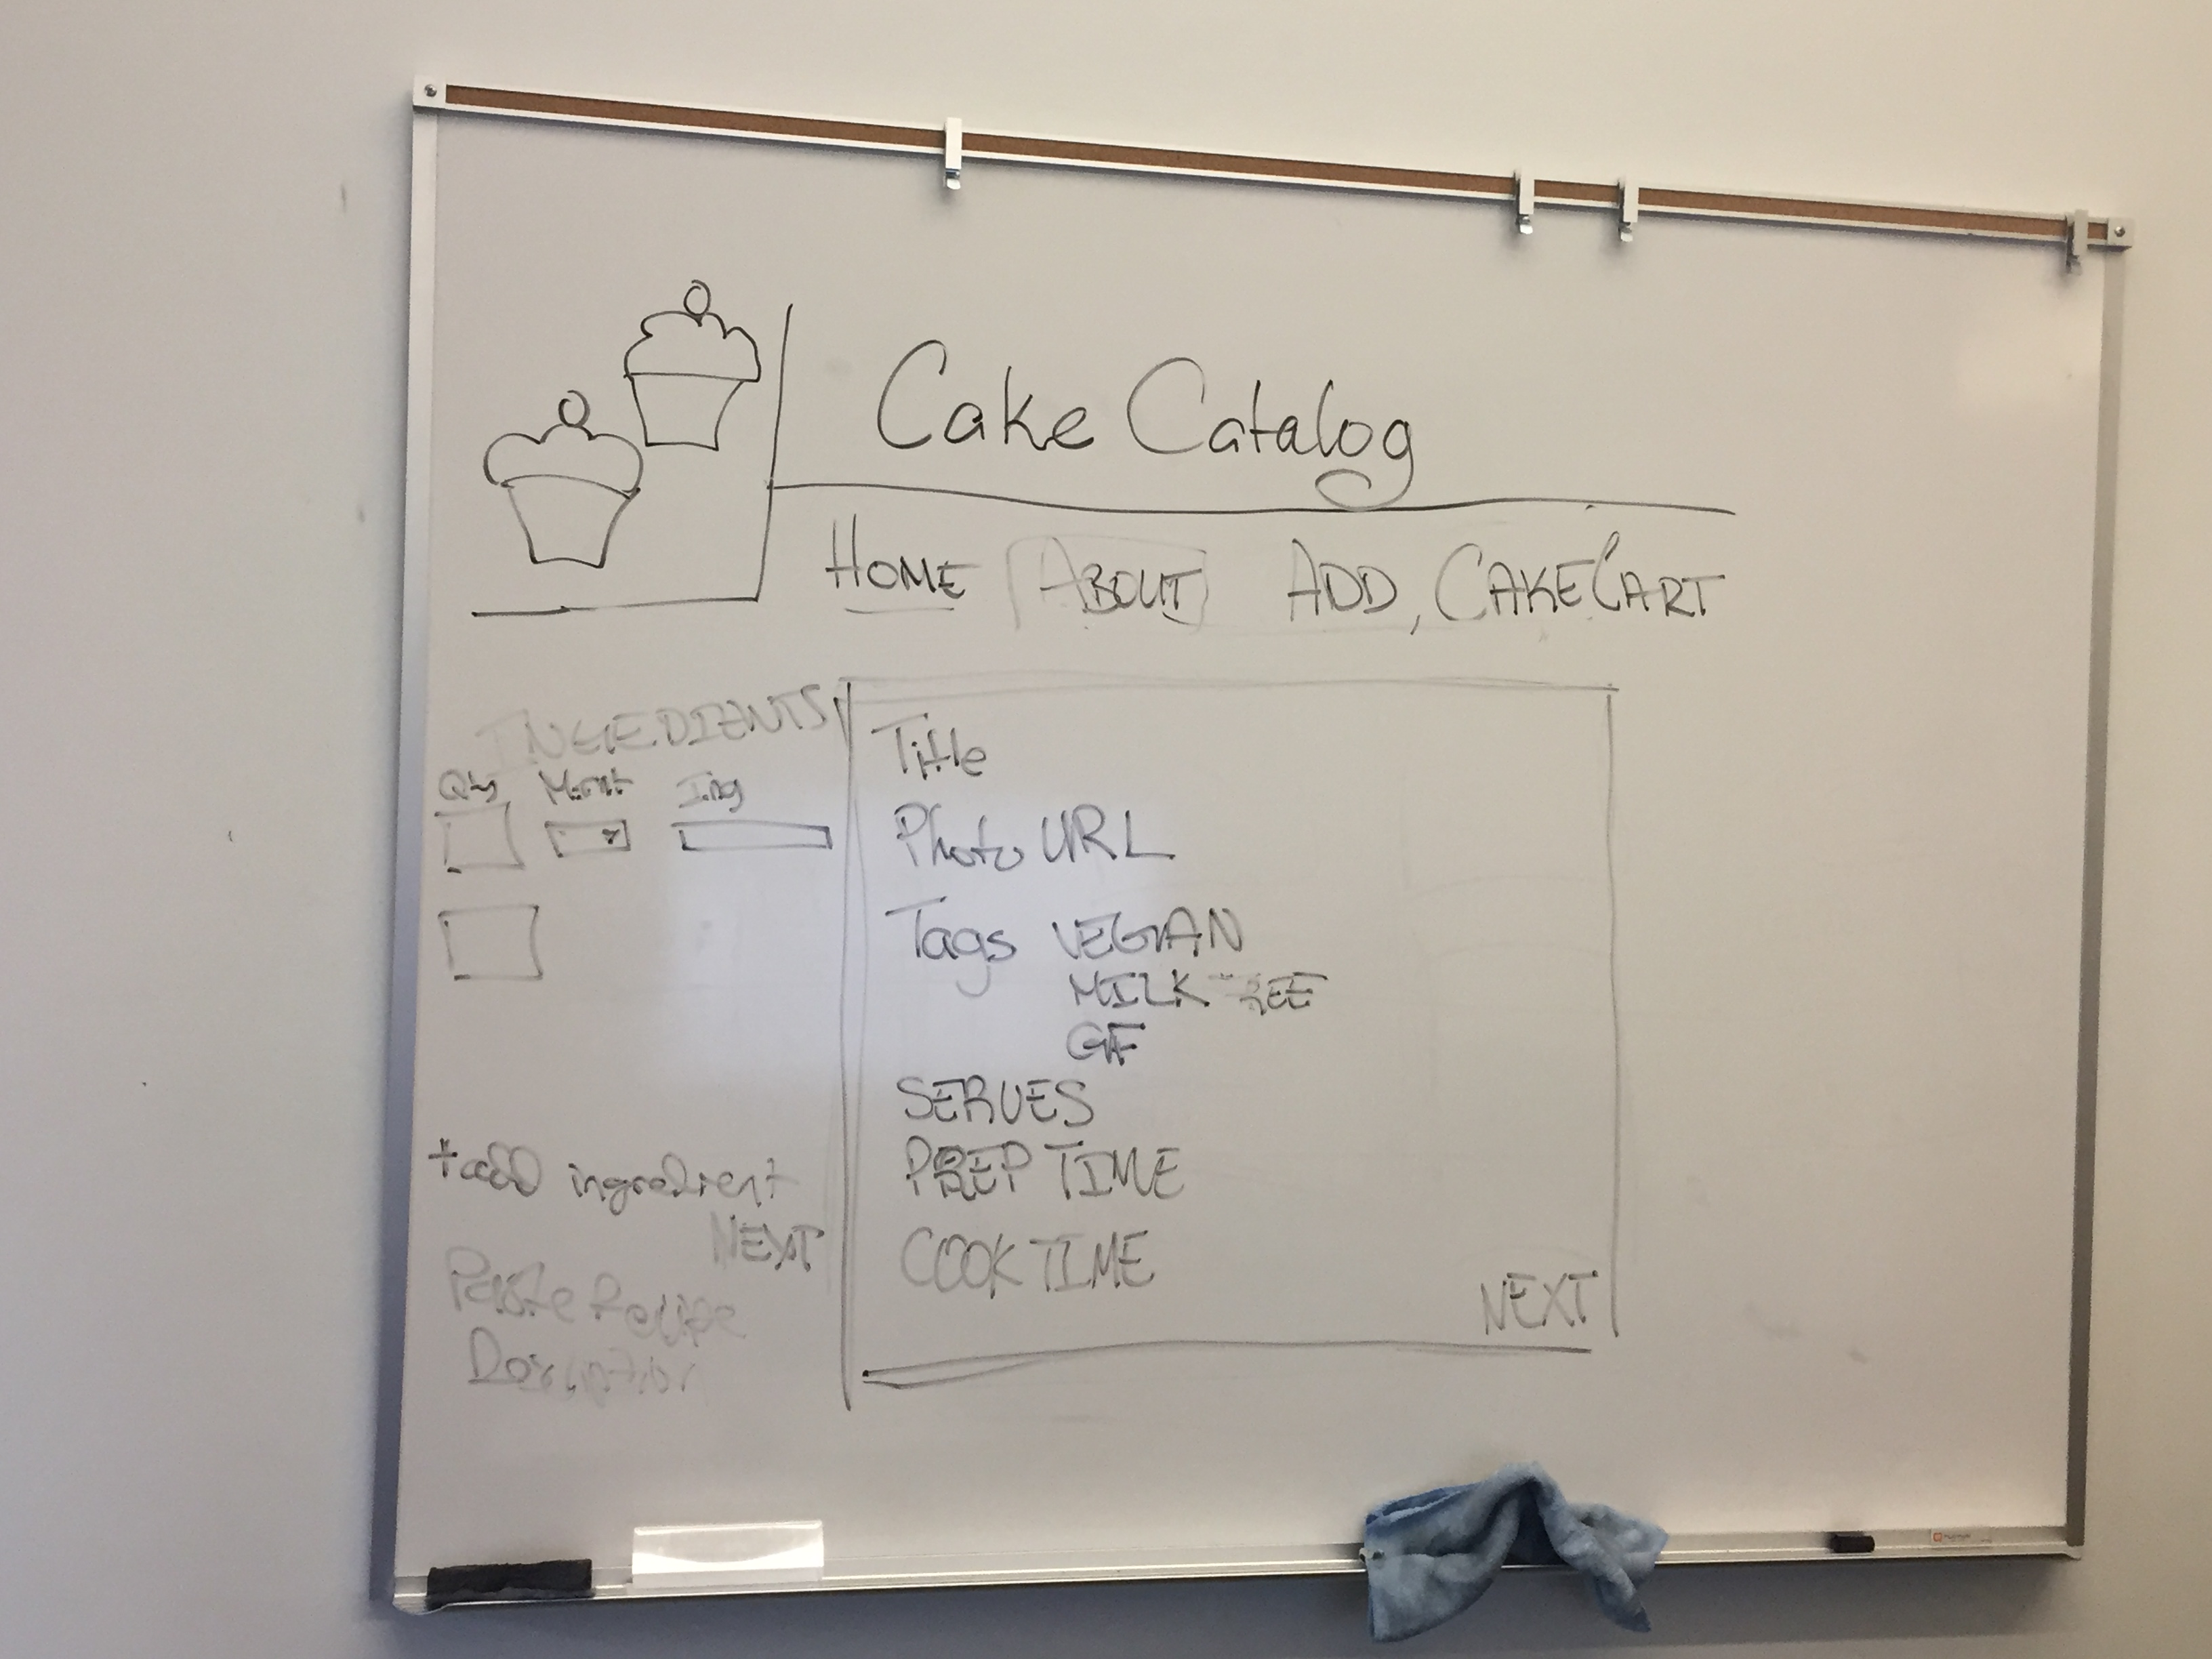 Cake Catalog
HOME ABOUT ADD, CAKECART
INGREDIENTS
Qty Msmt Ing
+add ingredient
NEXT
Paste Recipe
Description
Title
Photo URL
Tags VEGAN
MILK FREE
GF
SERVES
PREP TIME
COOK TIME
NEXT